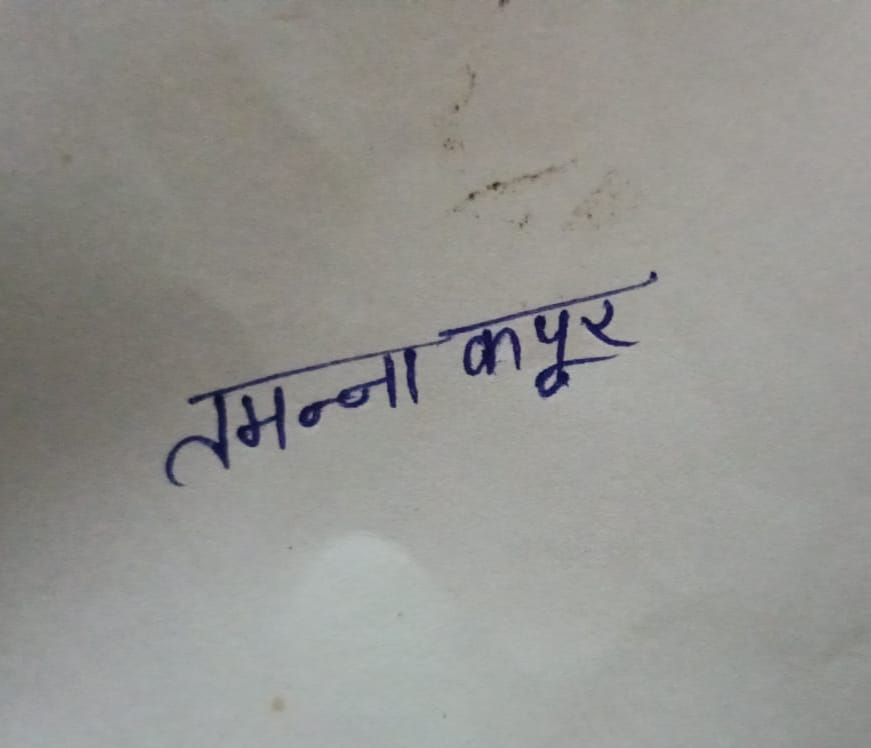 तमन्ना कपूर